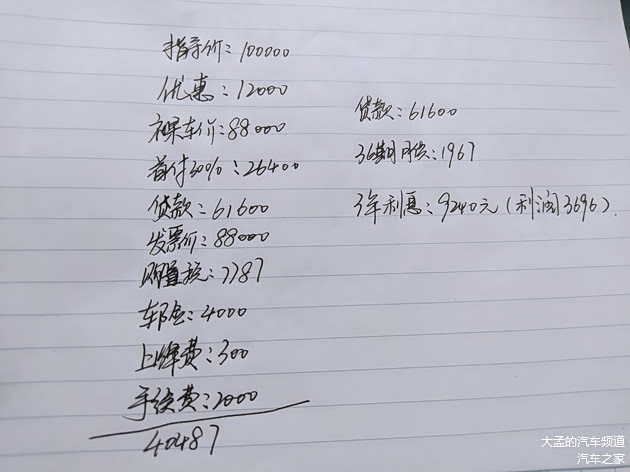 指导价：100000
优惠：12000
裸车价：88000
首付30%：26400
贷款：61600
发票价：88000
购置税：7787
车险：4000
上牌费：300
手续费：2000
40487
贷款：61600
36期月供：1967
3年利息：9240元（利润3696）.
大孟的汽车频道
汽车之家